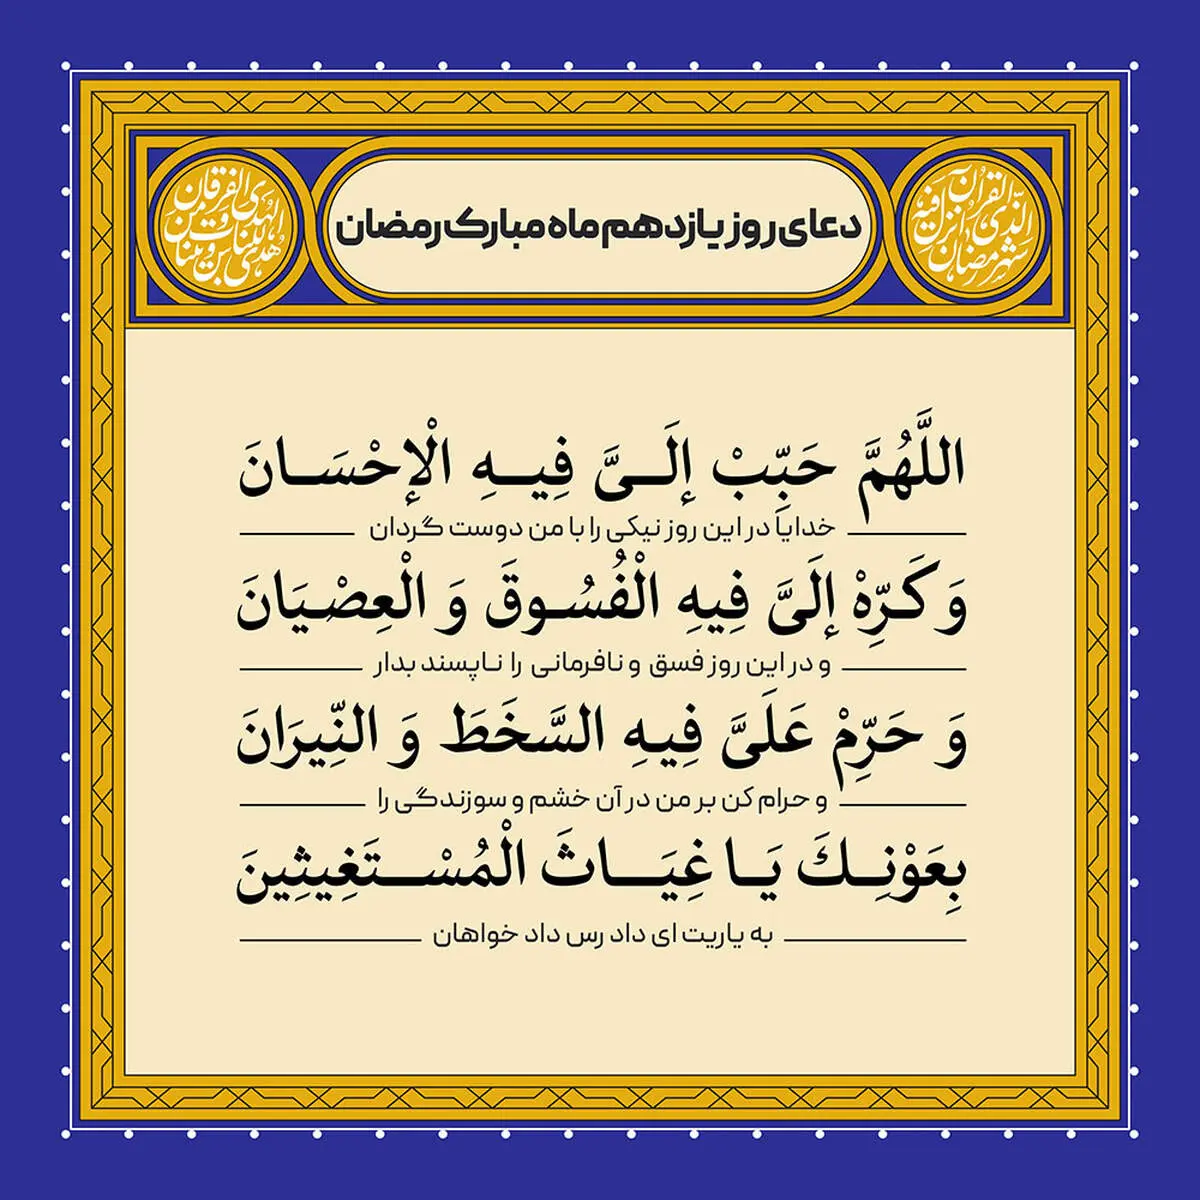 دعای روز یازدهم ماه مبارک رمضان
شهر رمضان
الذی انزل فیه
القرآن
هدی للناس
و بینات من
الهدی و الفرقان
اللَّهُمَّ حَبِّبْ إِلَىَّ فِيهِ الْإِحْسَانَ
خدایا در این روز نیکی را با من دوست گردان
وَ كَرِّهْ إِلَىَّ فِيهِ الْفُسُوقَ وَ الْعِصْيَانَ
و در این روز فسق و نافرمانی را ناپسند بدار
وَ حَرِّمْ عَلَىَّ فِيهِ السَّخَطَ وَ النِّيرَانَ
و حرام کن بر من در آن خشم و سوزندگی را
بِعَوْنِكَ يَا غِيَاثَ الْمُسْتَغِيثِينَ
به یاریت ای داد رس داد خواهان